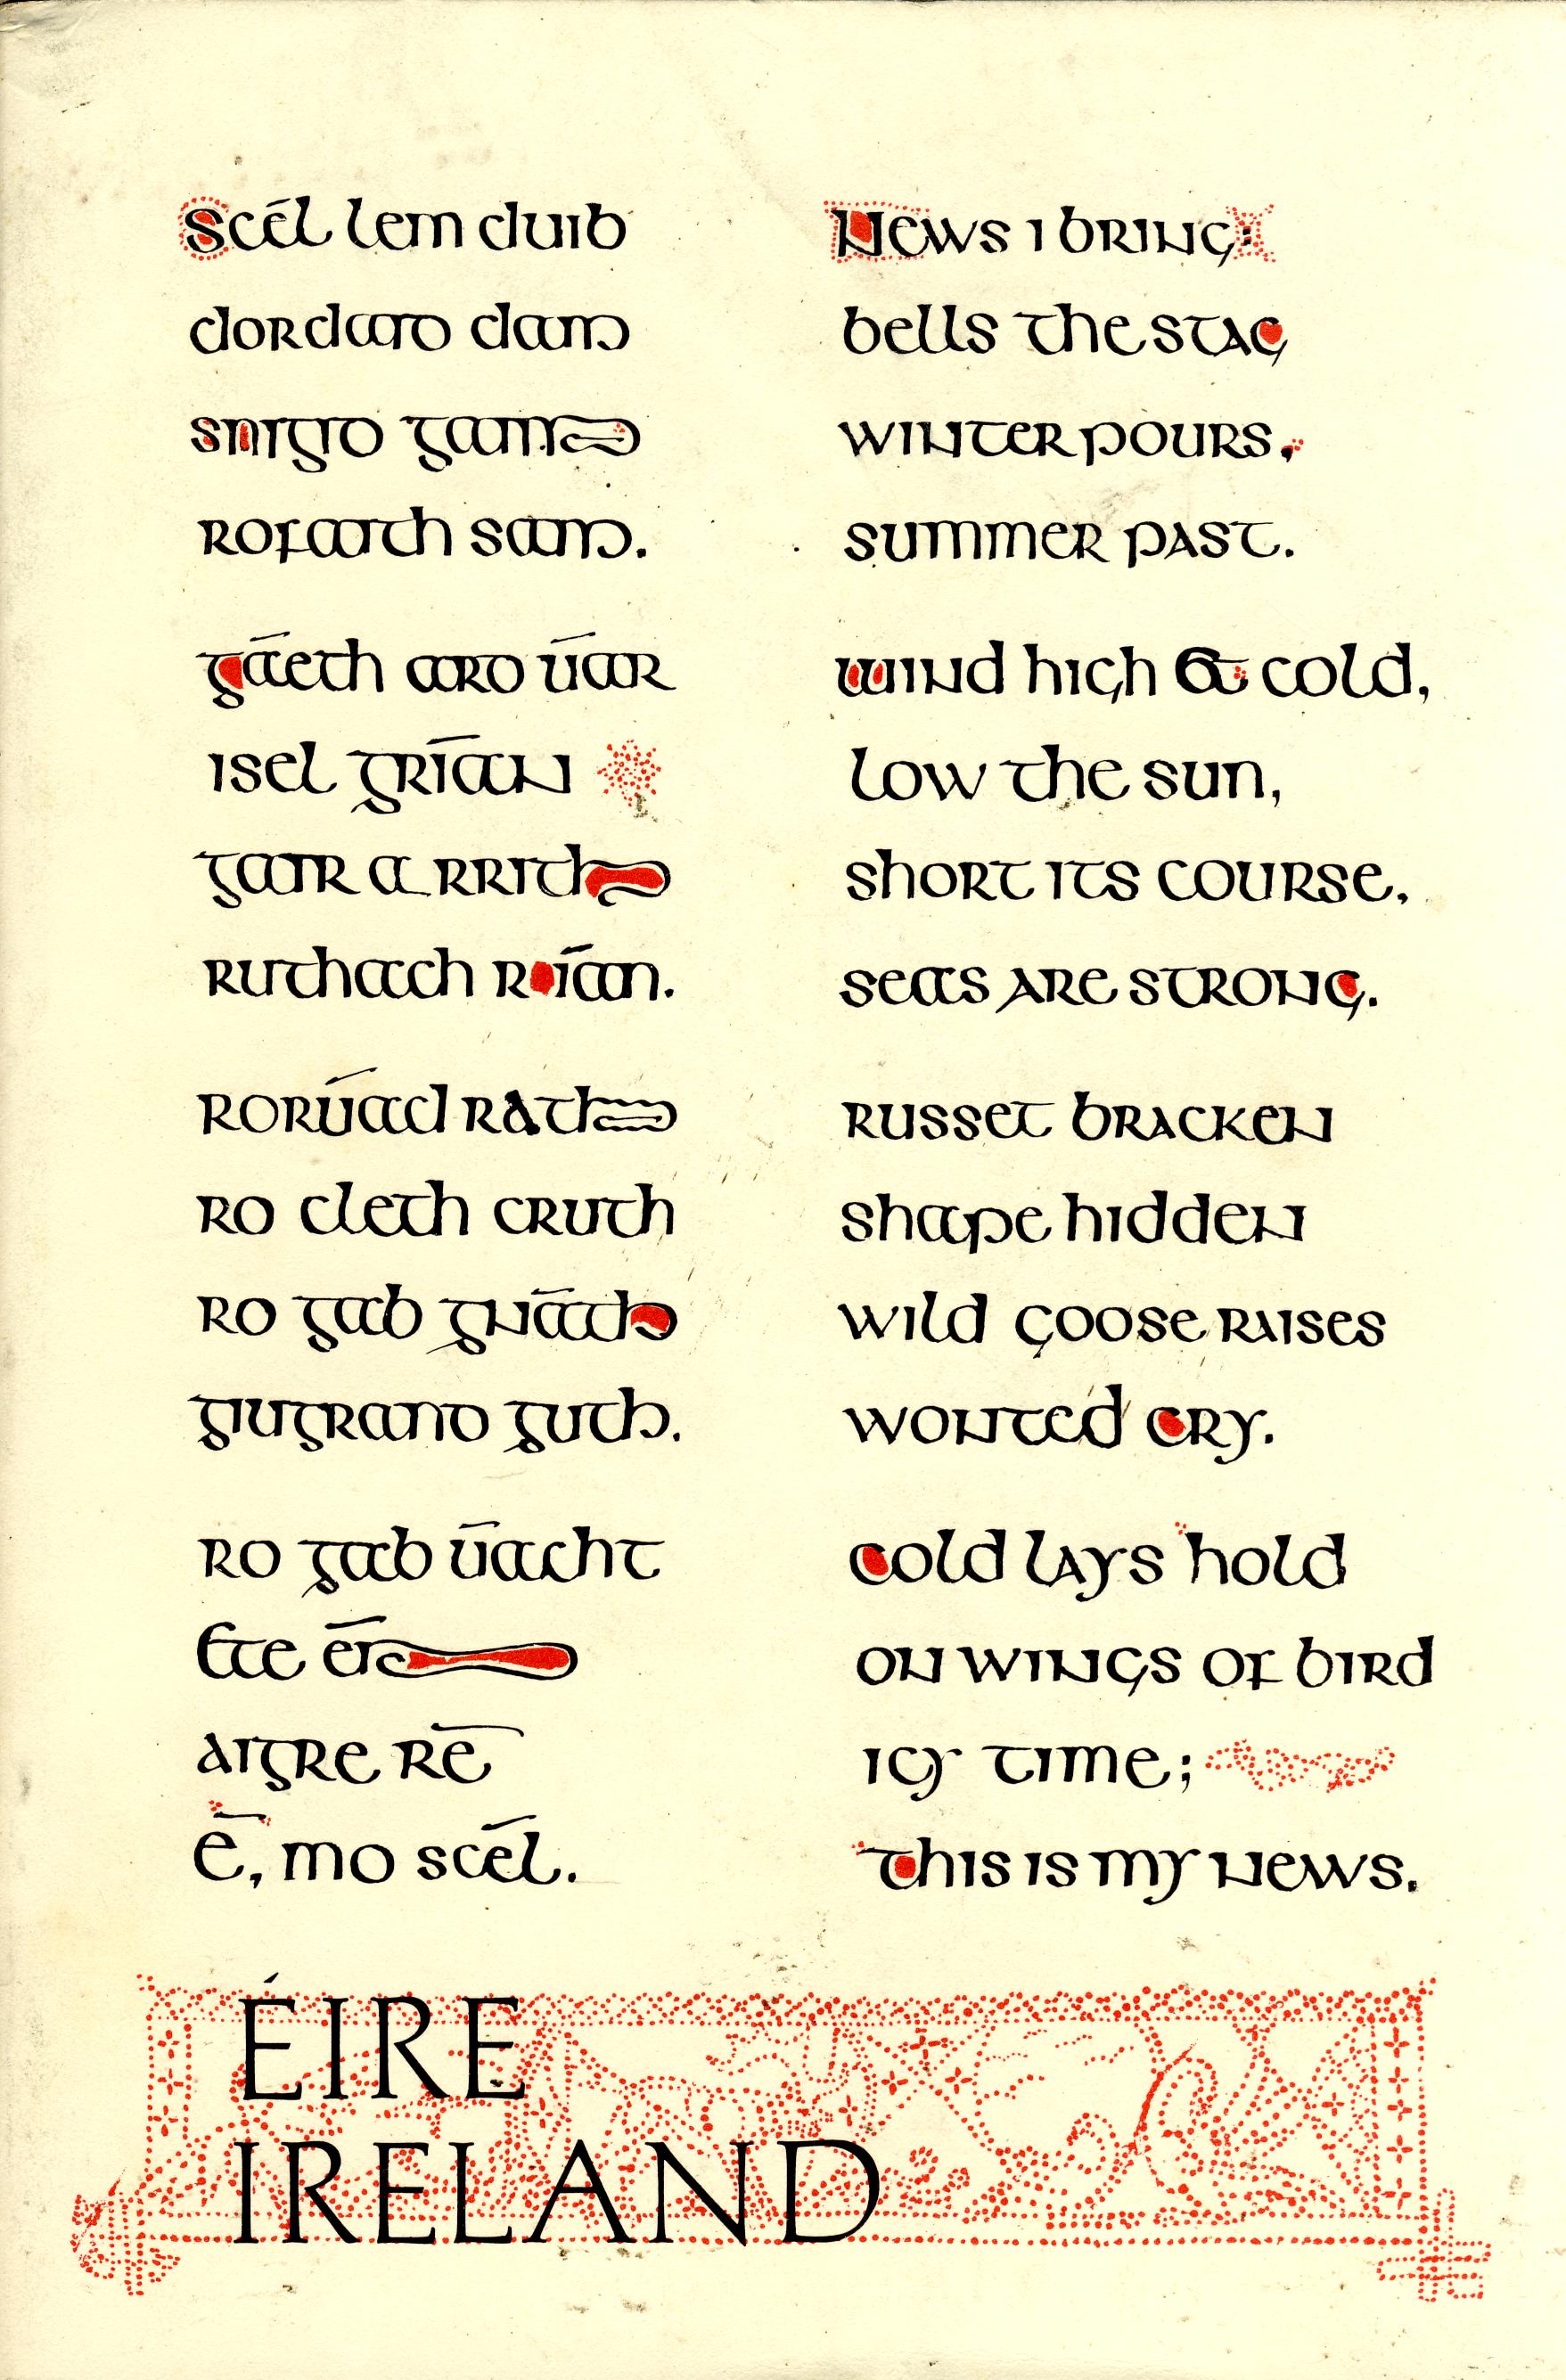 Scēl lem duib
dordaid dam
snigid gaim
rofaith sam.
gāeth ard ūar
isel grīan
gair a rrith
ruthach rīan.
rorūad rath
ro cleth cruth
ro gab gnāth
giugrand guth.
ro gab ūacht
Ete ēn
aigre rē
ē, mo scēl.
News i bring:
bells the stag
winter pours,
summer past.
wind high & cold,
low the sun,
short its course,
seas are strong.
russet bracken
shape hidden
wild goose raises
wonted cry.
cold lays hold
on wings of bird
icy time;
this is my news.
ÉIRE
IRELAND